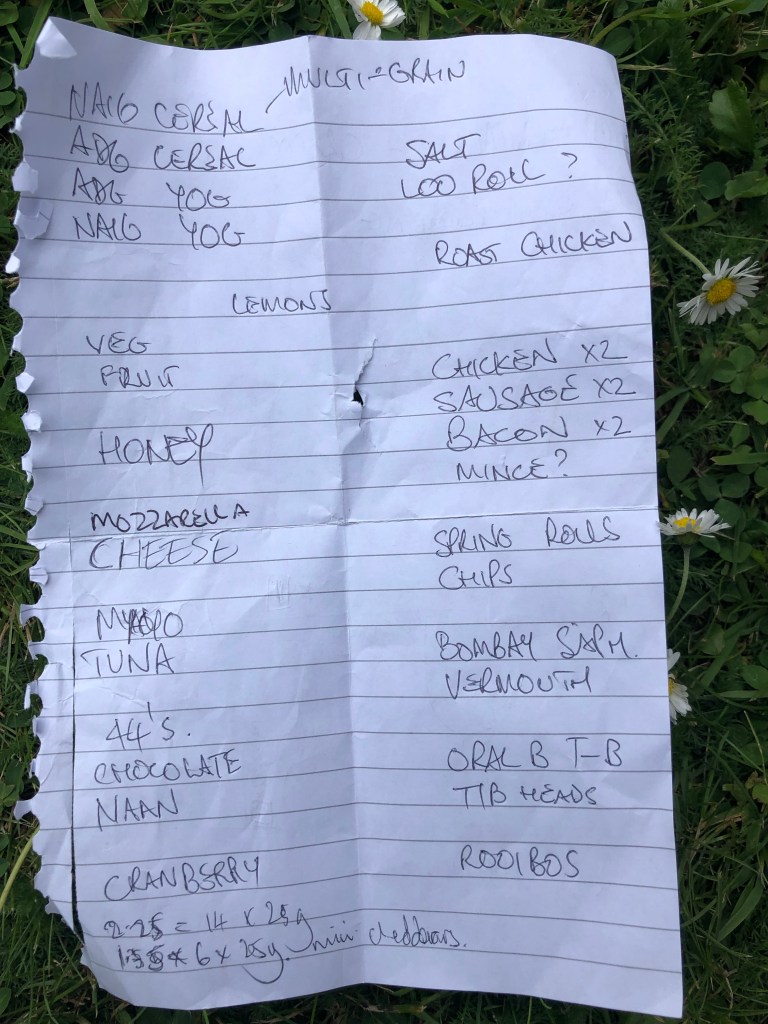 MULTI-GRAIN
NAIG CEREAL
ABG CEREAL
ABG YOG
NAIG YOG
SALT
LOO ROLL ?
ROAST CHICKEN
LEMONS
VEG
FRUIT
HONEY
MOZZARELLA
CHEESE
MAYO
TUNA
44'S.
CHOCOLATE
NAAN
CRANBERRY
CHICKEN X2
SAUSAGE X2
BACON X2
MINCE?
SPRING ROLLS
CHIPS
BOMBAY SAPH.
VERMOUTH
ORAL B T-B
T/B HEADS
ROOIBOS
2.25 = 14 x 25g
6 x 25g mini cheddars.